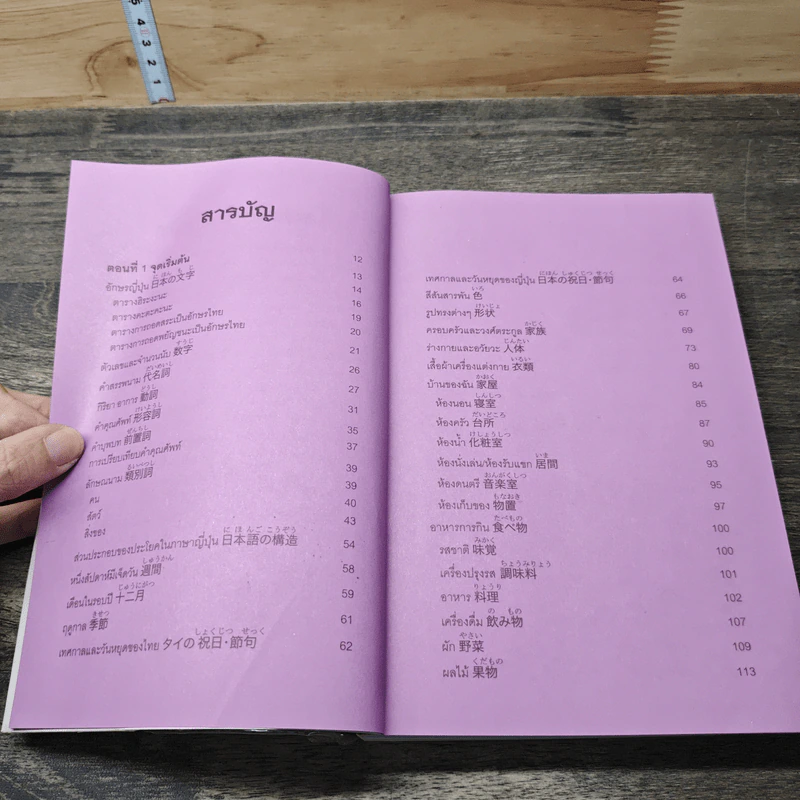 5
4
3
2
1
สารบัญ
ตอนที่ 1 จุดเริ่มต้น 12
อักษรญี่ปุ่น 日本の文字 13
ตารางฮิระงะนะ 14
ตารางคะตะคะนะ 16
ตารางการถอดสระเป็นอักษรไทย 19
ตารางการถอดพยัญชนะเป็นอักษรไทย 20
ตัวเลขและจำนวนนับ 数字 21
คำสรรพนาม 代名詞 26
กิริยา อาการ 動詞 27
คำคุณศัพท์ 形容詞 31
คำบุพบท 前置詞 35
การเปรียบเทียบคำคุณศัพท์ 37
ลักษณนาม 類別詞 39
คน 39
สัตว์ 40
สิ่งของ 43
ส่วนประกอบของประโยคในภาษาญี่ปุ่น 日本語の構造 54
หนึ่งสัปดาห์มีเจ็ดวัน 週間 58
เดือนในรอบปี 十二月 59
ฤดูกาล 季節 61
เทศกาลและวันหยุดของไทย タイの 祝日・節句 62
เทศกาลและวันหยุดของญี่ปุ่น 日本の祝日・節句 64
สีสันสารพัน 色 66
รูปทรงต่างๆ 形状 67
ครอบครัวและวงศ์ตระกูล 家族 69
ร่างกายและอวัยวะ 人体 73
เสื้อผ้าเครื่องแต่งกาย 衣類 80
บ้านของฉัน 家屋 84
ห้องนอน 寝室 85
ห้องครัว 台所 87
ห้องน้ำ 化粧室 90
ห้องนั่งเล่น/ห้องรับแขก 居間 93
ห้องดนตรี 音楽室 95
ห้องเก็บของ 物置 97
อาหารการกิน 食べ物 100
รสชาติ 味覚 100
เครื่องปรุงรส 調味料 101
อาหาร 料理 102
เครื่องดื่ม 飲み物 107
ผัก 野菜 109
ผลไม้ 果物 113